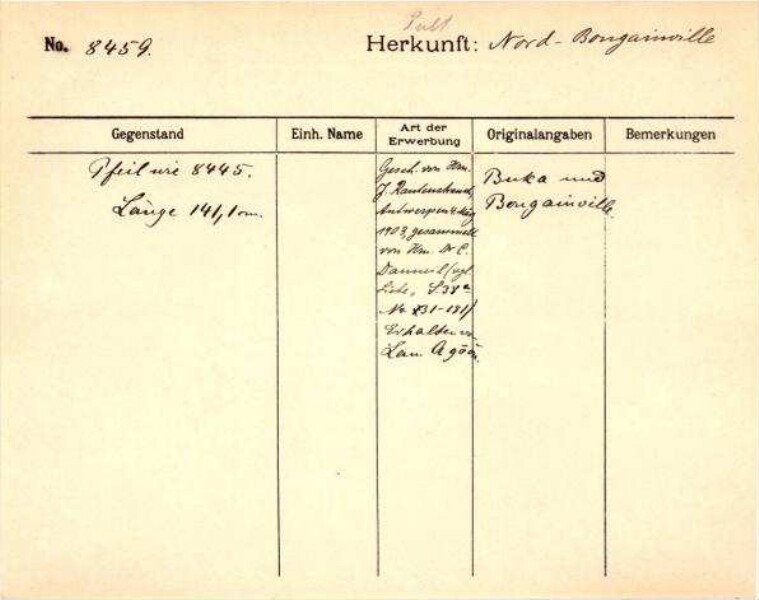 No. 8459.
Herkunft: Nord-Bougainville
Gegenstand
Einh. Name
Art der Erwerbung
Originalangaben
Bemerkungen
Pfeil wie 8445.
Länge 141,1 cm.
Gesch. von Hrn.
J. Rautenstrauch,
Antwerpen
1903, gesammelt
von Hrn. Dr C.
Danneil (vgl.
Liste, S.
No. 131/
Erhalten
Buka und
Bougainville.